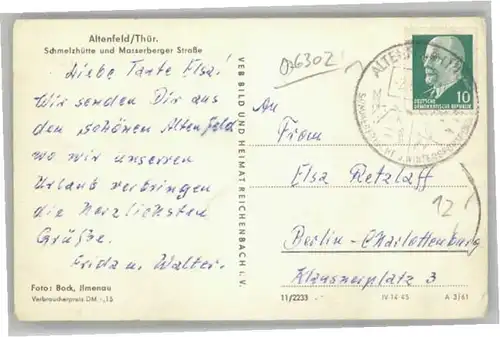 Altenfeld/Thür.
Schmelzhütte und Masserberger Straße
Liebe Tante Elsa!
Wir senden Dir aus
den schönen Altenfeld
wo wir unseren
Urlaub verbringen
die herzlichsten
Grüße.
Frida u. Walter.
Foto: Bock, Ilmenau
Verbraucherpreis DM -,15
VEB BILD UND HEIMAT REICHENBACH I. V.
06302
10
DEUTSCHE
DEMOKRATISCHE REPUBLIK
An
Frau
Elsa Retzlaff
12
Berlin-Charlottenburg
Klausnerplatz 3
11/2233 IV-14-45 A 3/61